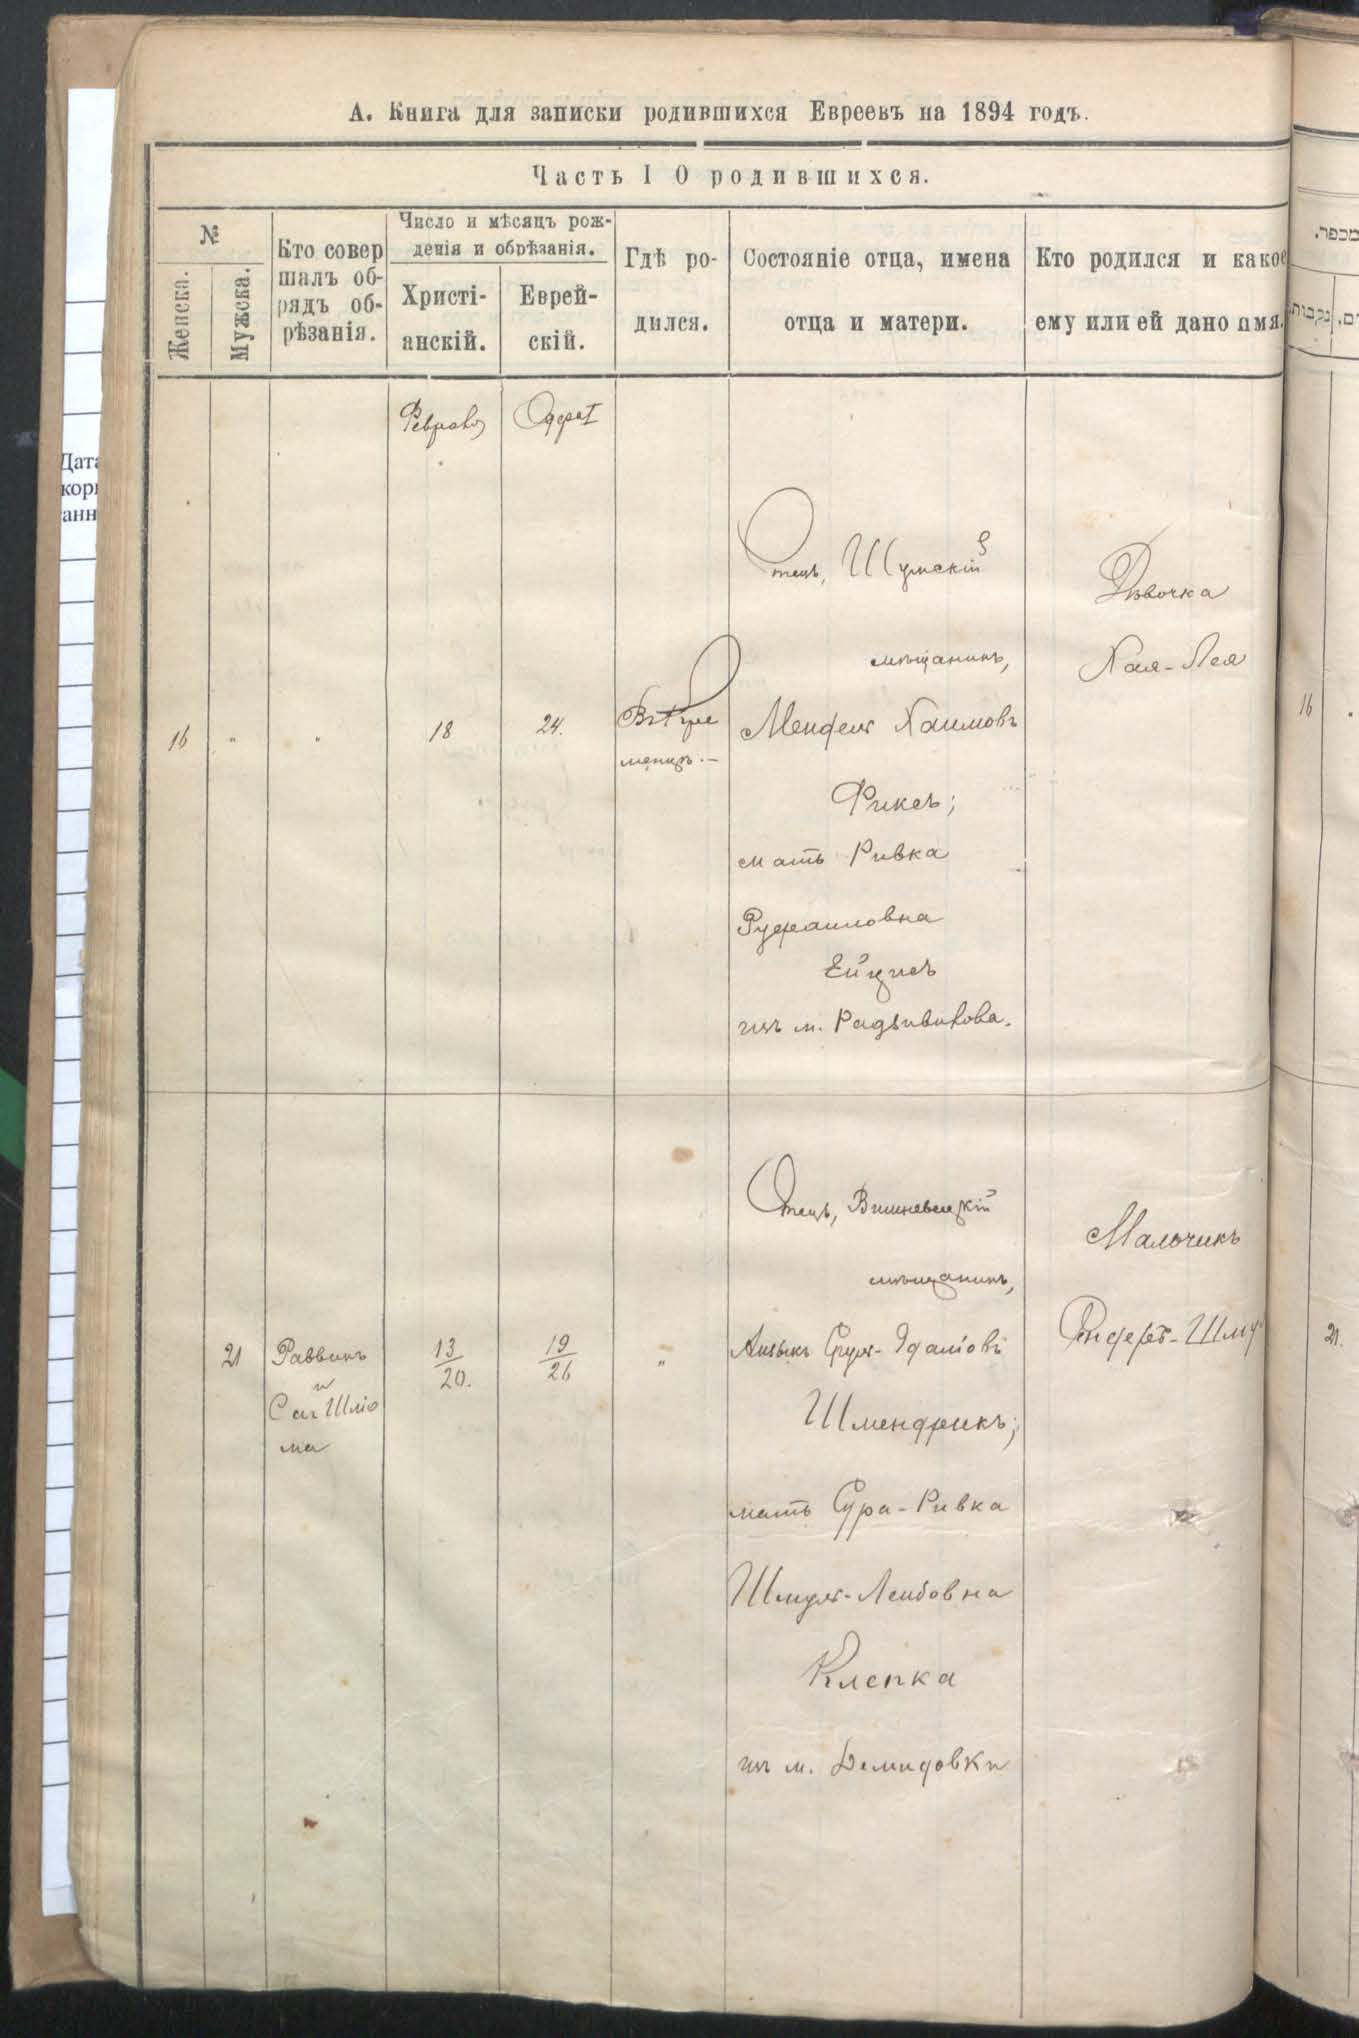 А. Книга для записки родившихся Евреевъ на 1894 годъ.
Часть I О родившихся.
№
Женска.
Мужска.
Кто совер
шалъ об-
рядъ об-
рѣзанія.
Число и мѣсяцъ рож-
денія и обрѣзанія.
Христі-
анскій.
Еврей-
скій.
Гдѣ ро-
дился.
Состояніе отца, имена
отца и матери.
Кто родился и какое
ему или ей дано имя.
Февраль
Адаръ I
16
"
"
18
24.
Въ Кре
менцѣ.–
Отецъ, Шумскій
мѣщанинъ,
Мендель Хаимовъ
Фиксъ;
мать Ривка
Руфаиловна
Ейдисъ
изъ м. Радзивилова.
Дѣвочка
Хая-Лея
21
Раввинъ
и
Сая Шліо
ма
13
20.
19
26
"
Отецъ, Вишневецкій
мѣщанинъ,
Срул-
Шмендрикъ;
мать Сура-Ривка
Шмуль-Лейбовна
Клепка
изъ м. Демидовки
Мальчикъ
מכפר.
נקבות.
16
21.
Дата